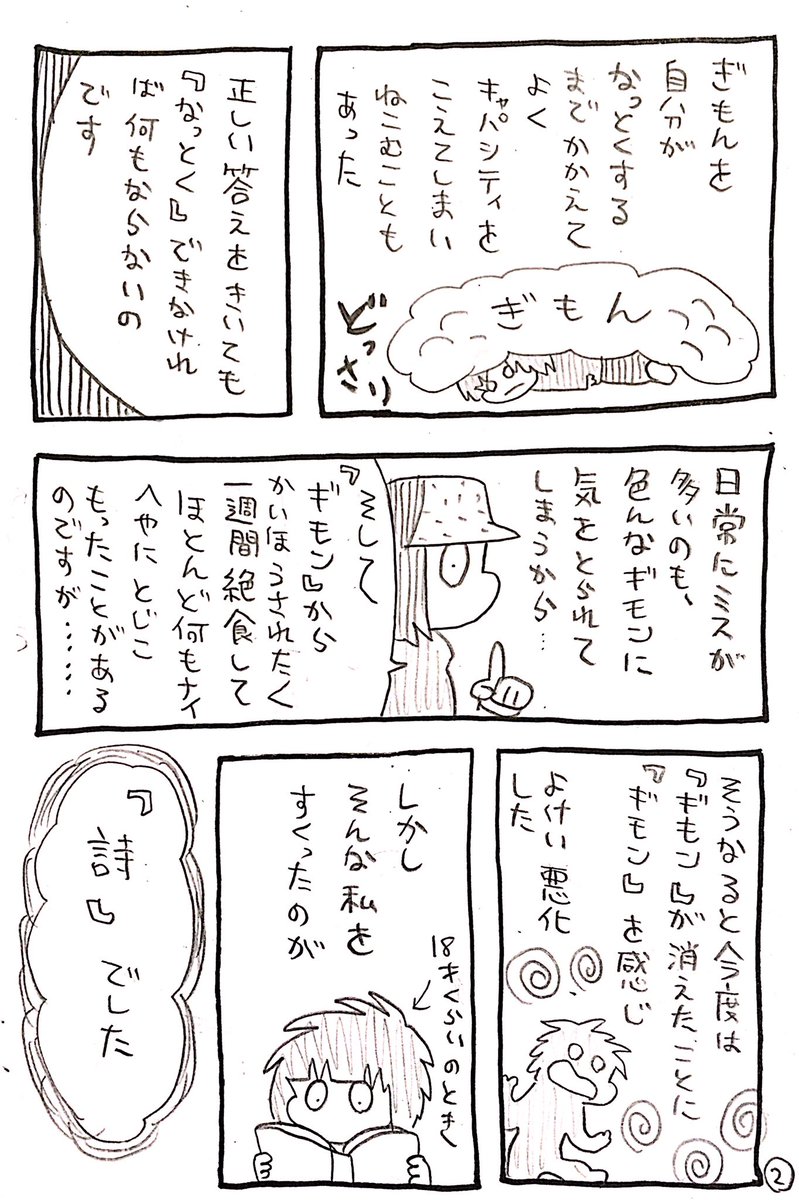 ぎもんを
自分が
なっとくする
までかかえて
よく
キャパシティを
こえてしまい
ねこむことも
あった
ぎもん
どっさり
正しい答えをきいても
『なっとく』できなけれ
ば何もならないの
です
日常にミスが
多いのも、
色んなギモンに
気をとられて
しまうから…
そして
『ギモン』から
かいほうされたく
一週間絶食して
ほとんど何もナイ
へやにとじこ
もったことがある
のですが……
そうなると今度は
『ギモン』が消えたことに
『ギモン』を感じ
よけい悪化
した
しかし
そんな私を
すくったのが
18才くらいのとき
『詩』でした
2